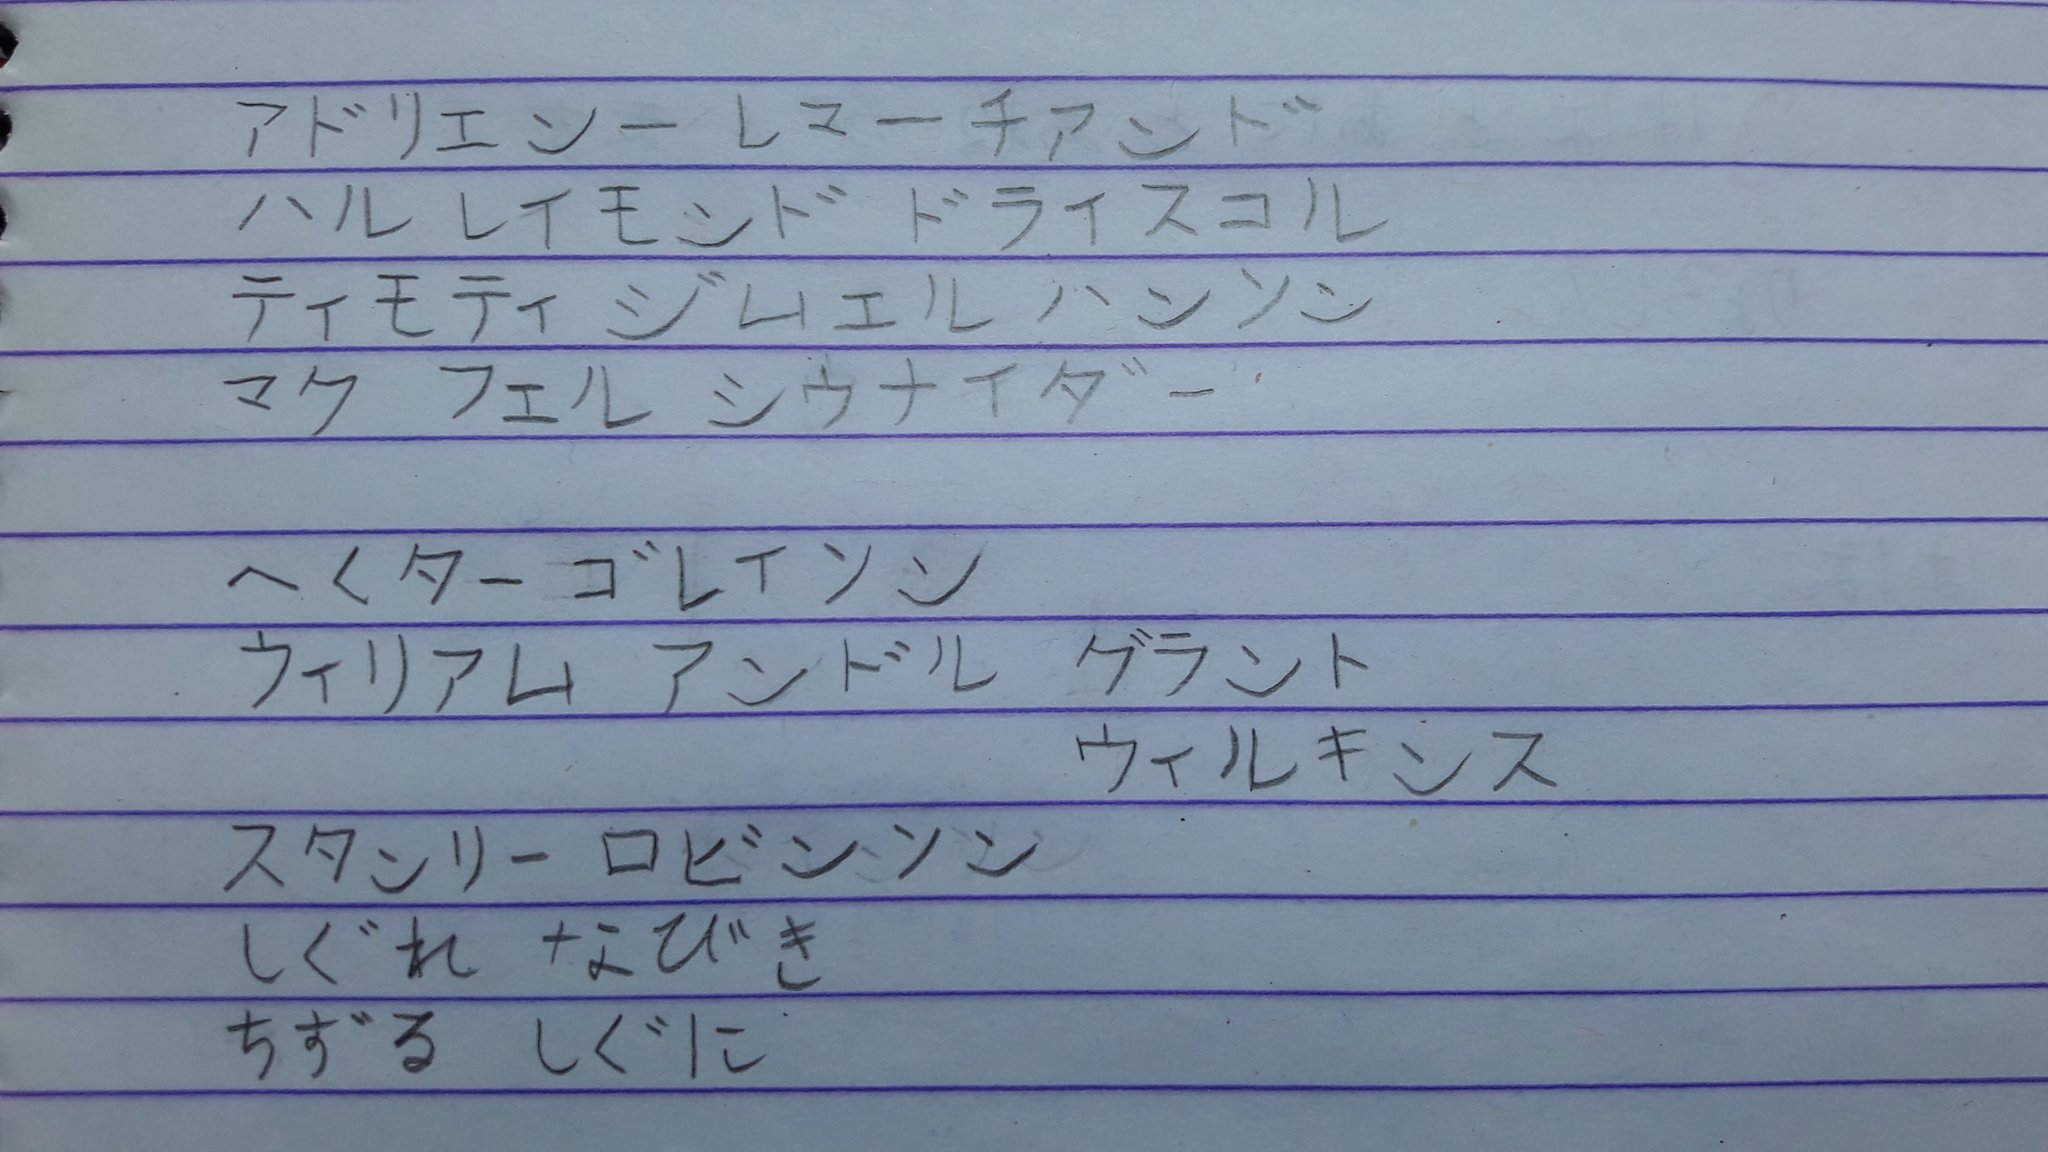 アドリエンー レマーチアンド
ハル レイモンド ドライスコル
ティモティ ジムエル ハンソン
マク フェル シウナイダー
へくター ゴレイソン
ウィリアム アンドル グラント
ウィルキンス
スタンリー ロビンソン
しぐれ なびき
ちずる しぐに